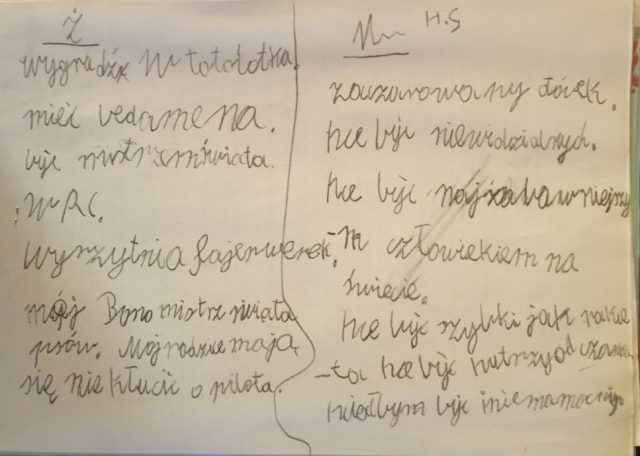 Ż
wygradźx W totolotka.
mieć vedamena.
byc mistrzem świata.
W RC.
wyrzytnia fajerwerek.
mój Bono mistrz świata
psów. Moj rodzice mają
się nie kłucic o pilota.
H.S
zaczarowany ołówek.
hce być niewidzialnych.
hce byc najzabawniejszy
-m człowiekiem na
świecie.
hce byc szybki jak rakie
-ta hce byc hytrzy od
byc